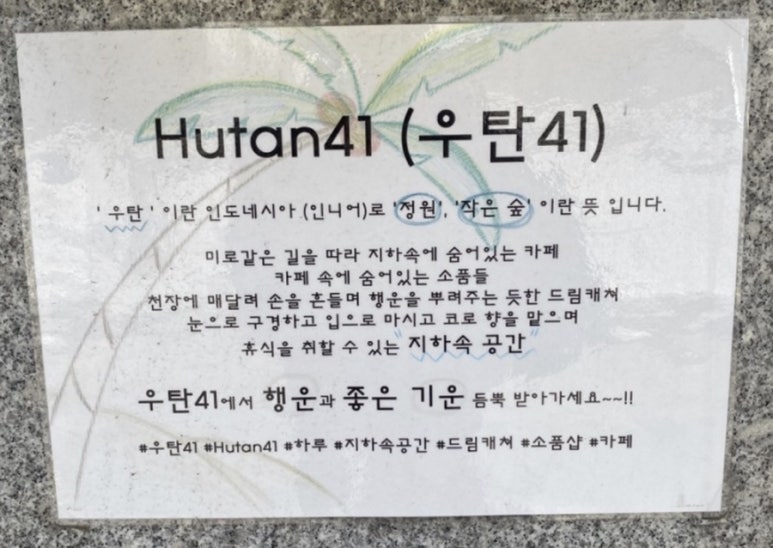 Hutan41 (우탄41)
' 우탄 ' 이란 인도네시아 (인니어)로 '정원', '작은 숲' 이란 뜻 입니다.
미로같은 길을 따라 지하속에 숨어있는 카페
카페 속에 숨어있는 소품들
천장에 매달려 손을 흔들며 행운을 뿌려주는 듯한 드림캐쳐
눈으로 구경하고 입으로 마시고 코로 향을 맡으며
휴식을 취할 수 있는 " 지하속 공간 "
우탄41에서 행운과 좋은 기운 듬뿍 받아가세요~~!!
#우탄41 #Hutan41 #하루 #지하속공간 #드림캐쳐 #소품샵 #카페